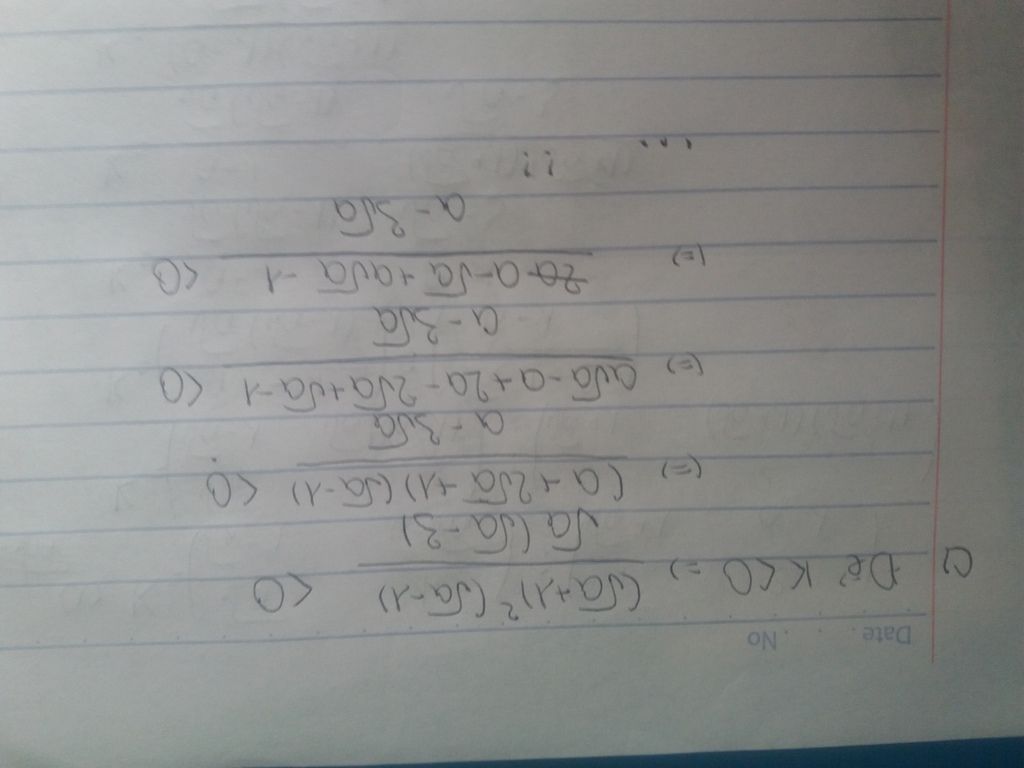 Date. No.
c) Để K<0 => (√a+1)²(√a-1) / √a(√a-3) <0
(=) (a+2√a+1)(√a-1) / a-3√a <0
(=) a√a-a+2a-2√a+√a-1 / a-3√a <0
(=) a-√a+a√a-1 / a-3√a <0
... ??